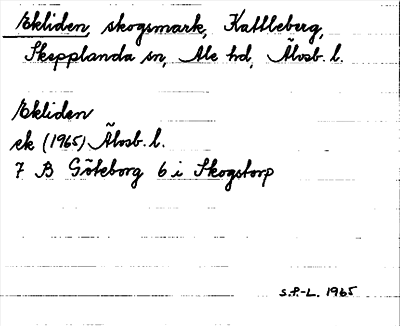 Ekliden, skogsmark, Kattleberg,
Skepplanda sn, Ale hd, Älvsb. l.
Ekliden
ek (1965) Älvsb. l.
7 B Göteborg 6 i Skogstorp
S.P-L. 1965